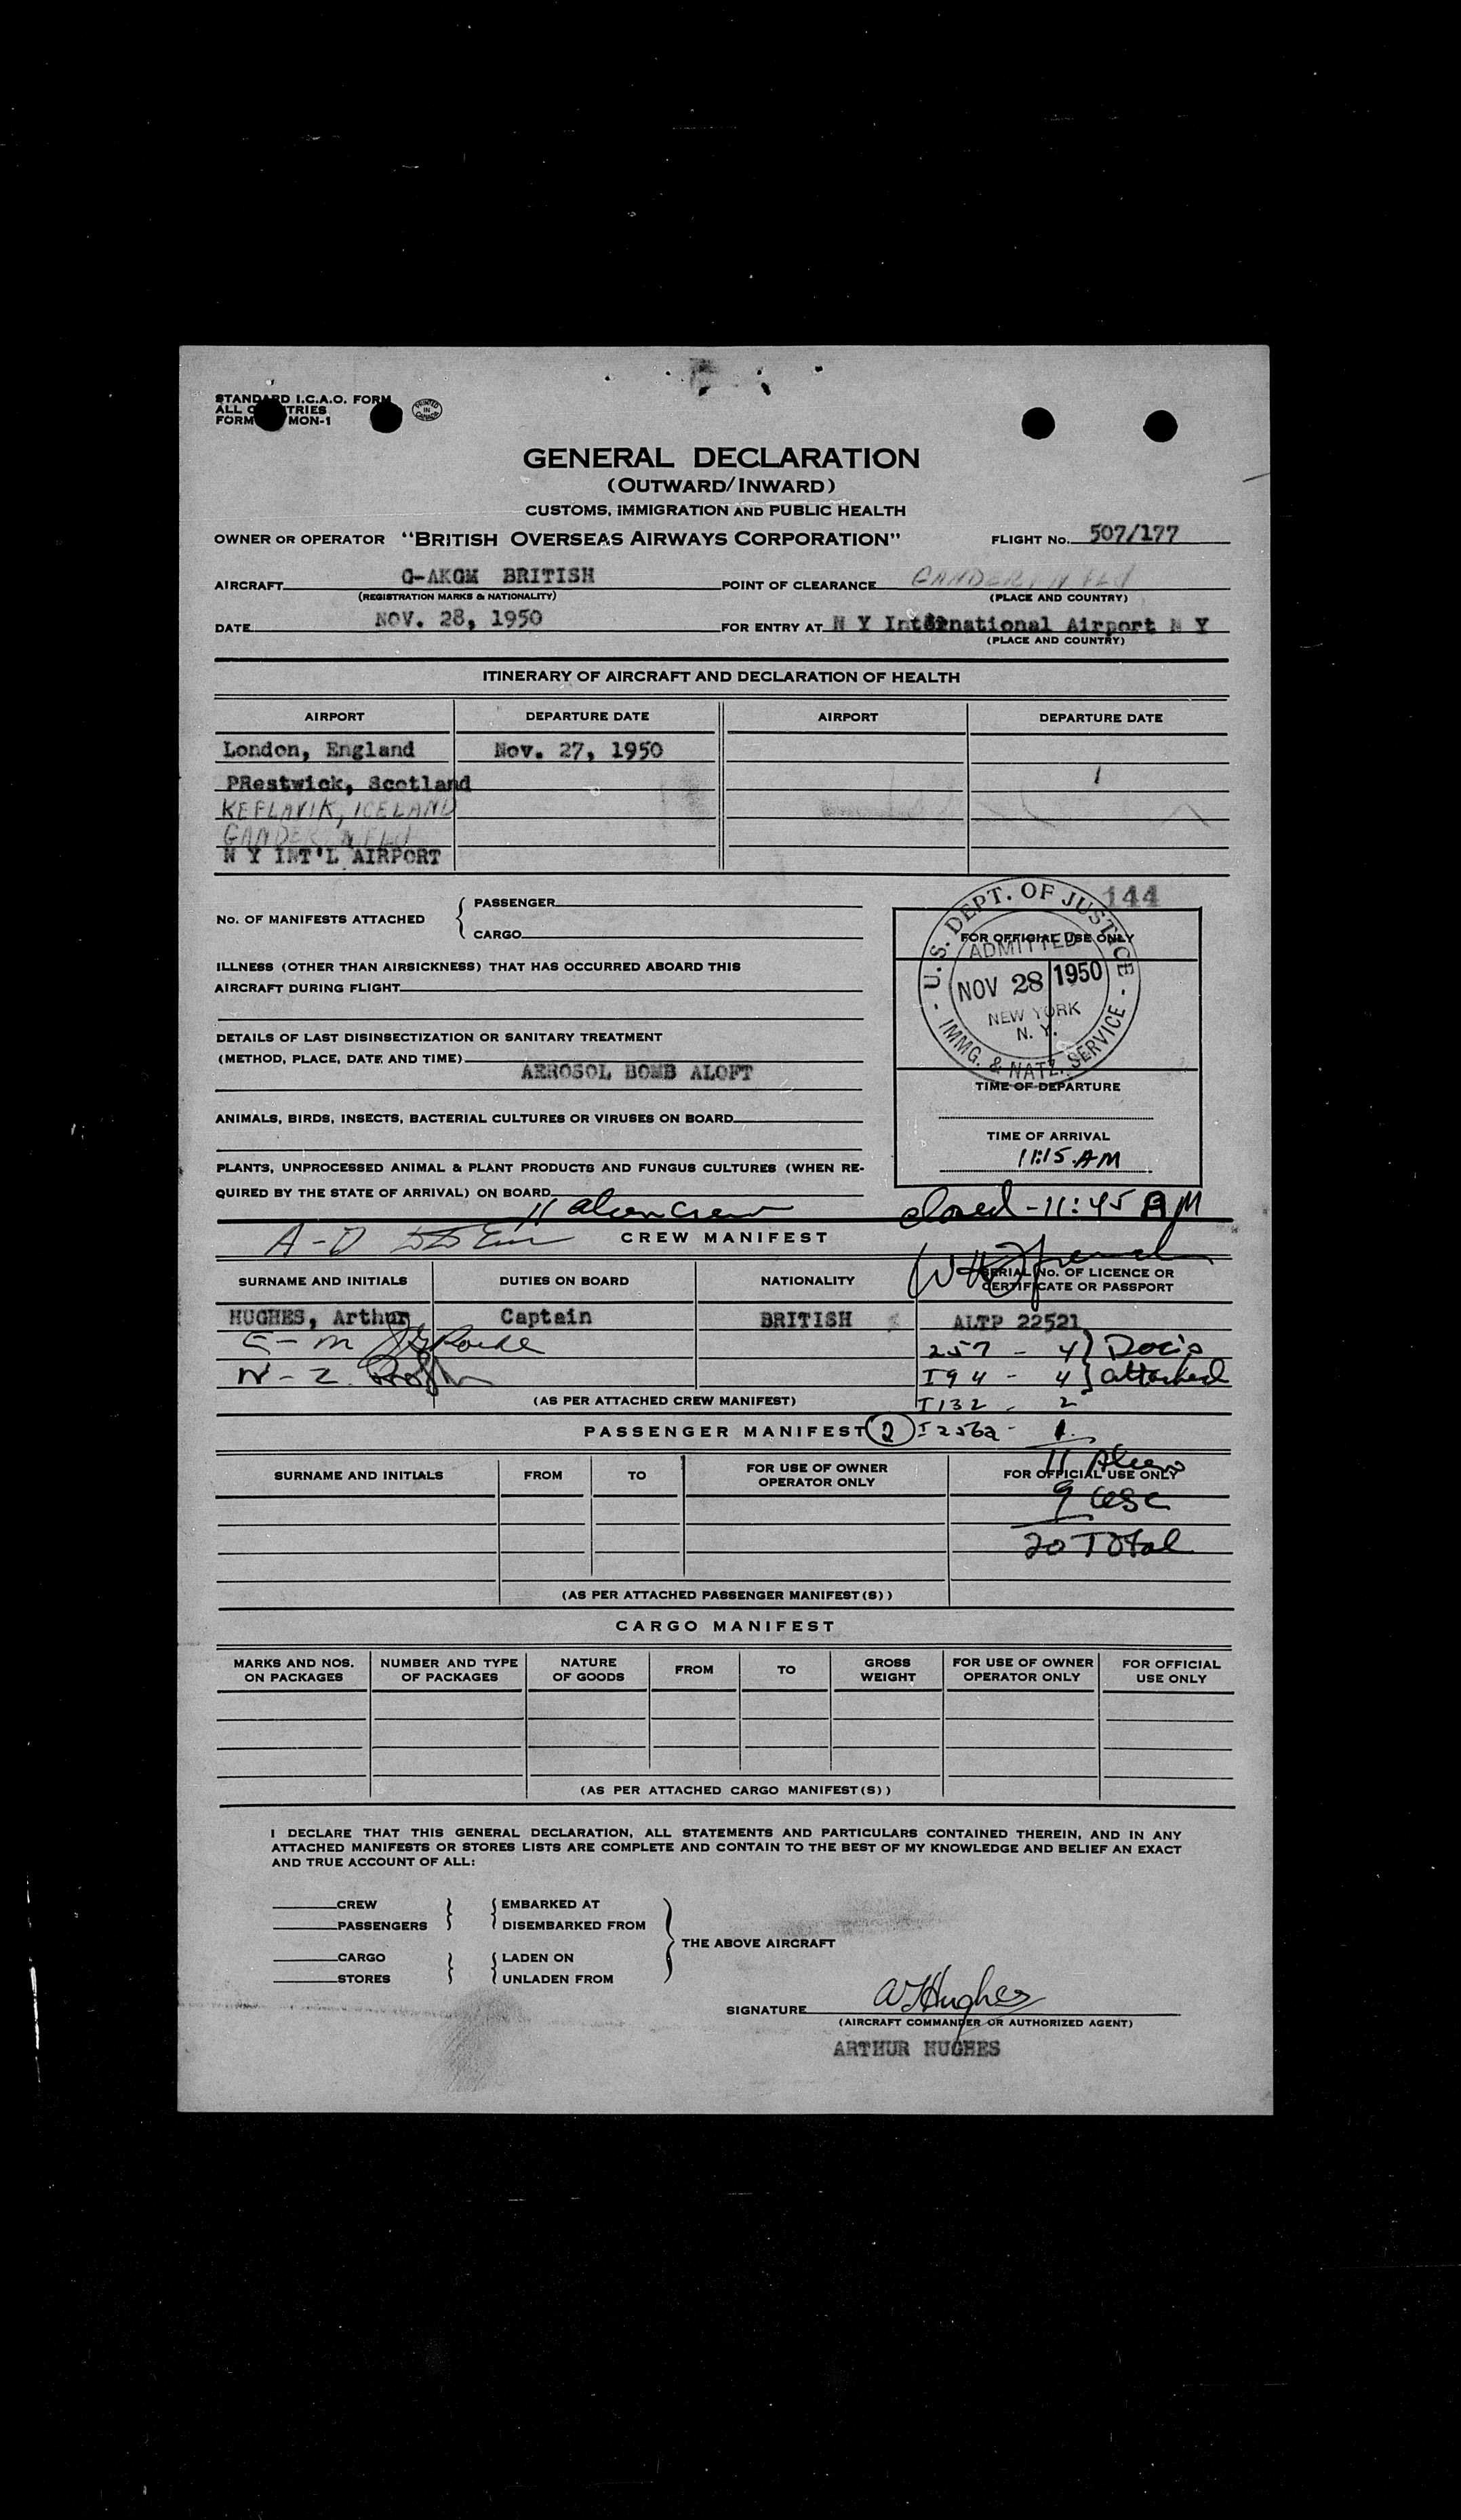 STANDARD I.C.A.O. FORM
ALL COUNTRIES
FORM MON-1
PRINTED IN CANADA
GENERAL DECLARATION
(OUTWARD/INWARD)
CUSTOMS, IMMIGRATION AND PUBLIC HEALTH
OWNER OR OPERATOR "BRITISH OVERSEAS AIRWAYS CORPORATION" FLIGHT No. 507/177
AIRCRAFT G-AKGM BRITISH POINT OF CLEARANCE GANDER, NFLD
(REGISTRATION MARKS & NATIONALITY) (PLACE AND COUNTRY)
DATE NOV. 28, 1950 FOR ENTRY AT N Y International Airport N Y
(PLACE AND COUNTRY)
ITINERARY OF AIRCRAFT AND DECLARATION OF HEALTH
AIRPORT DEPARTURE DATE AIRPORT DEPARTURE DATE
London, England Nov. 27, 1950
PRestwick, Scotland
KEFLAVIK, ICELAND
GANDER NFLD
N Y INT'L AIRPORT
144
No. OF MANIFESTS ATTACHED
PASSENGER
CARGO
FOR OFFICIAL USE ONLY
U.S. DEPT. OF JUSTICE
ADMITTED
NOV 28 1950
NEW YORK
N. Y.
IMMG. & NATZ. SERVICE
ILLNESS (OTHER THAN AIRSICKNESS) THAT HAS OCCURRED ABOARD THIS
AIRCRAFT DURING FLIGHT
DETAILS OF LAST DISINSECTIZATION OR SANITARY TREATMENT
(METHOD, PLACE, DATE AND TIME)
AEROSOL BOMB ALOFT
TIME OF DEPARTURE
ANIMALS, BIRDS, INSECTS, BACTERIAL CULTURES OR VIRUSES ON BOARD
TIME OF ARRIVAL
11:15 AM
PLANTS, UNPROCESSED ANIMAL & PLANT PRODUCTS AND FUNGUS CULTURES (WHEN RE-
QUIRED BY THE STATE OF ARRIVAL) ON BOARD
11 alien crew
closed - 11:45 AM
A-D
CREW MANIFEST
SURNAME AND INITIALS DUTIES ON BOARD NATIONALITY SERIAL No. OF LICENCE OR CERTIFICATE OR PASSPORT
HUGHES, Arthur Captain BRITISH ALTP 22521
E-M
257 - 4 } Doc's
N-Z
I94 - 4 } attached
(AS PER ATTACHED CREW MANIFEST)
I132 - 2
PASSENGER MANIFEST 2 I 256a - 1
11 Aliens
SURNAME AND INITIALS FROM TO FOR USE OF OWNER OPERATOR ONLY FOR OFFICIAL USE ONLY
9 USC
20 Total
(AS PER ATTACHED PASSENGER MANIFEST(S))
CARGO MANIFEST
MARKS AND NOS. ON PACKAGES NUMBER AND TYPE OF PACKAGES NATURE OF GOODS FROM TO GROSS WEIGHT FOR USE OF OWNER OPERATOR ONLY FOR OFFICIAL USE ONLY
(AS PER ATTACHED CARGO MANIFEST(S))
I DECLARE THAT THIS GENERAL DECLARATION, ALL STATEMENTS AND PARTICULARS CONTAINED THEREIN, AND IN ANY
ATTACHED MANIFESTS OR STORES LISTS ARE COMPLETE AND CONTAIN TO THE BEST OF MY KNOWLEDGE AND BELIEF AN EXACT
AND TRUE ACCOUNT OF ALL:
CREW EMBARKED AT
PASSENGERS DISEMBARKED FROM
THE ABOVE AIRCRAFT
CARGO LADEN ON
STORES UNLADEN FROM
SIGNATURE A Hughes
(AIRCRAFT COMMANDER OR AUTHORIZED AGENT)
ARTHUR HUGHES